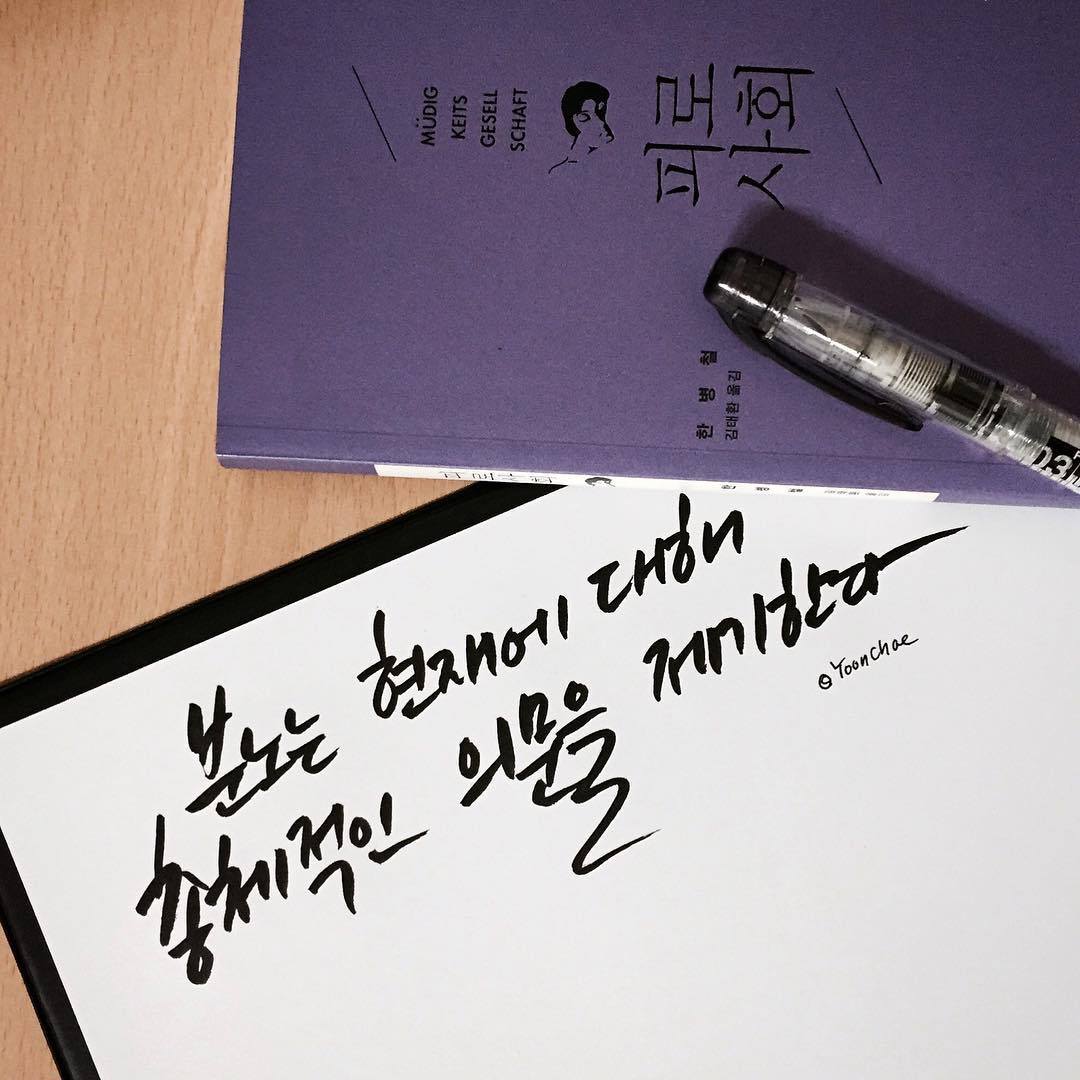 MÜDIG
KEITS
GESELL
SCHAFT
피로
사회
한병철
김태환 옮김
분노는 현재에 대해
총체적인 의문을 제기한다
@Yoonchae